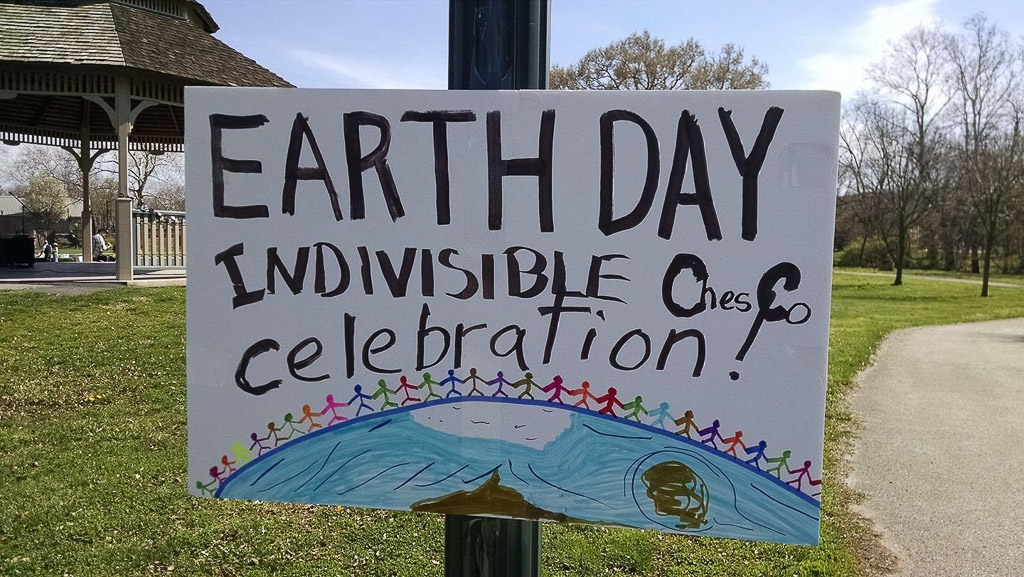 EARTH DAY
INDIVISIBLE ChesCo
celebration!